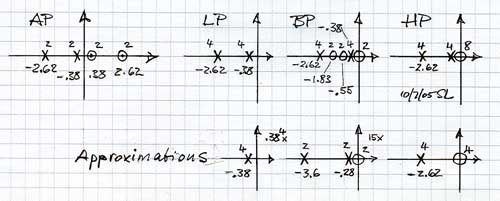 AP LP BP HP
-.38
2 2 2 2 4 4 4 2 2 4 2 4 4 8
-2.62 -.38 .38 2.62 -2.62 -.38 -2.62 -2.62
-1.83
-.55 10/7/05 SL
.38⁴x 15x
Approximations 4 2 2 2 4 4
-.38 -3.6 -.28 -2.62